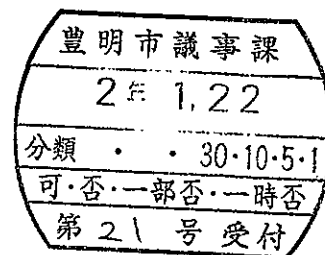 豊明市議事課
2年 1.22
分類 ・ ・ 30・10・5・1
可・否・一部否・一時否
第21号受付